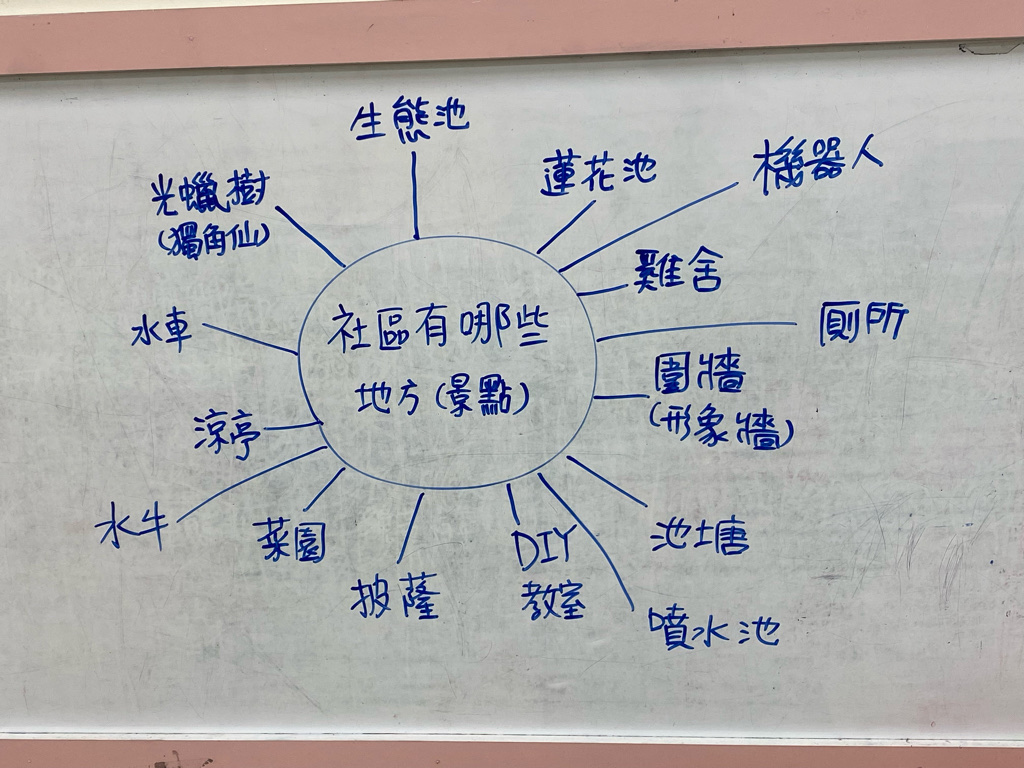 社區有哪些
地方(景點)
生態池
蓮花池
機器人
雞舍
廁所
圍牆
(形象牆)
池塘
噴水池
DIY
教室
披薩
菜園
水牛
涼亭
水車
光蠟樹
(獨角仙)